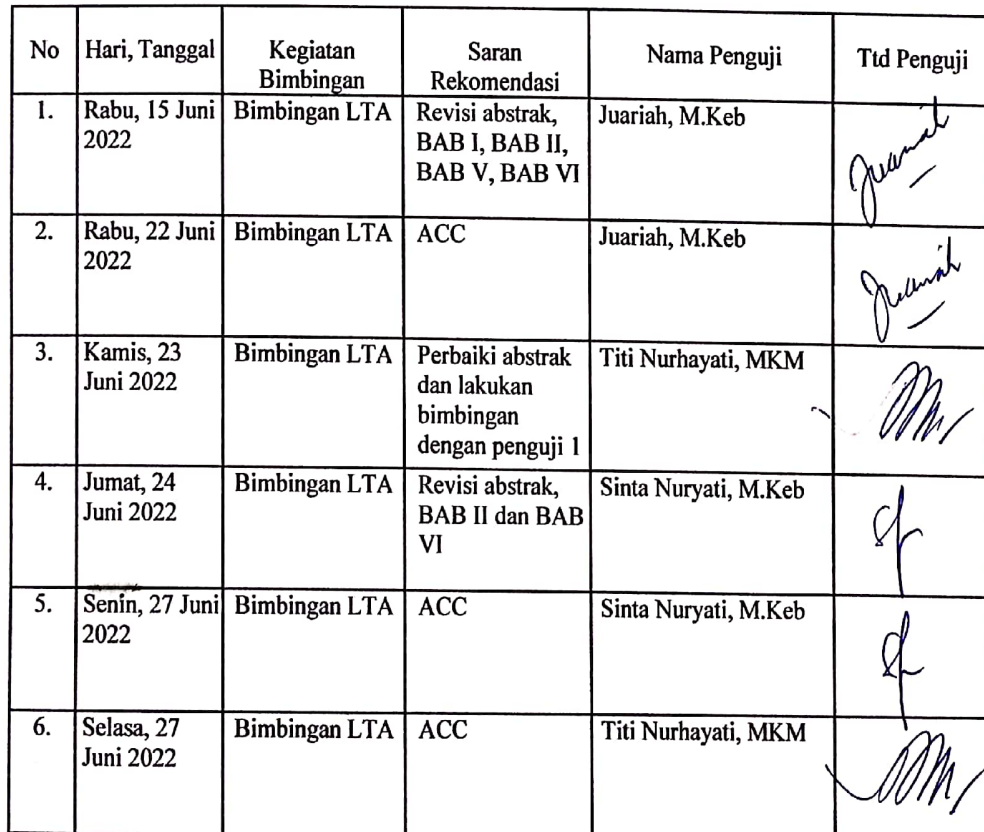 No
Hari, Tanggal
Kegiatan
Bimbingan
Saran
Rekomendasi
Nama Penguji
Ttd Penguji
1.
Rabu, 15 Juni
2022
Bimbingan LTA
Revisi abstrak,
BAB I, BAB II,
BAB V, BAB VI
Juariah, M.Keb
Juariah
2.
Rabu, 22 Juni
2022
Bimbingan LTA
ACC
Juariah, M.Keb
Juariah
3.
Kamis, 23
Juni 2022
Bimbingan LTA
Perbaiki abstrak
dan lakukan
bimbingan
dengan penguji 1
Titi Nurhayati, MKM
4.
Jumat, 24
Juni 2022
Bimbingan LTA
Revisi abstrak,
BAB II dan BAB
VI
Sinta Nuryati, M.Keb
5.
Senin, 27 Juni
2022
Bimbingan LTA
ACC
Sinta Nuryati, M.Keb
6.
Selasa, 27
Juni 2022
Bimbingan LTA
ACC
Titi Nurhayati, MKM